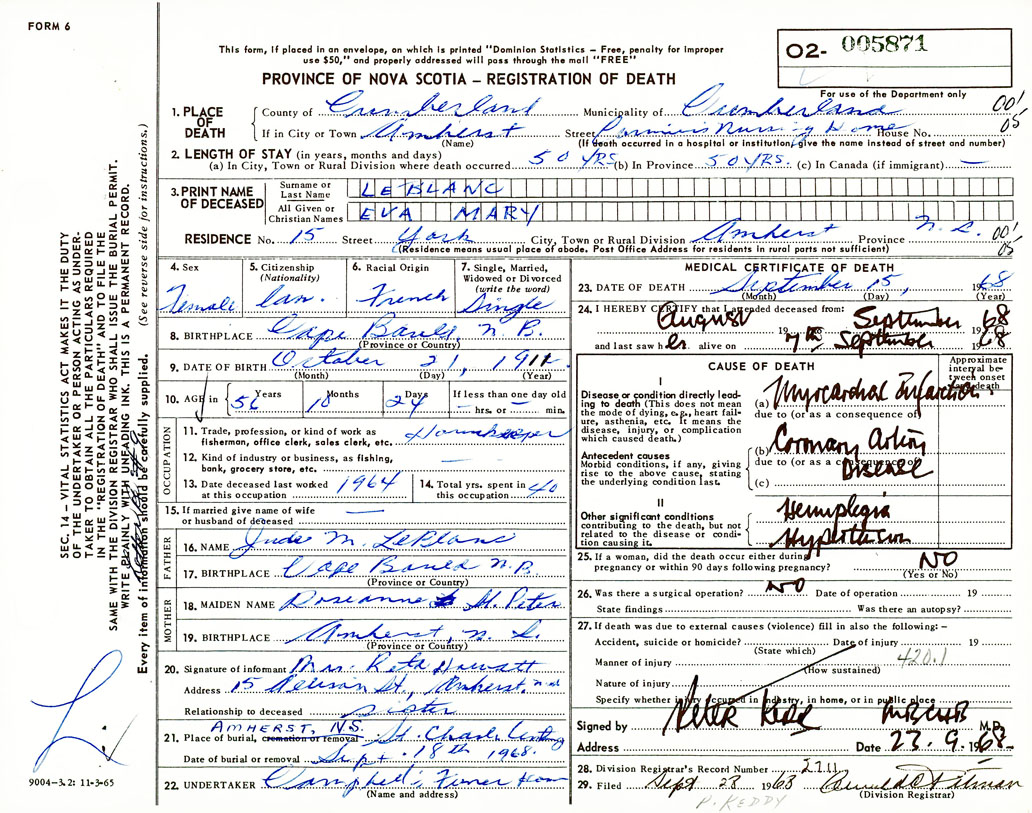 FORM 6
This form, if placed in an envelope, on which is printed "Dominion Statistics – Free, penalty for improper
use $50," and properly addressed will pass through the mail "FREE"
PROVINCE OF NOVA SCOTIA – REGISTRATION OF DEATH
O2- 005871
For use of the Department only
001
05
1. PLACE OF DEATH
County of Cumberland Municipality of Cumberland
If in City or Town Amherst Street Nursing Home House No.
(Name) (If death occurred in a hospital or institution, give the name instead of street and number)
2. LENGTH OF STAY (in years, months and days)
(a) In City, Town or Rural Division where death occurred 50 YRS. (b) In Province 50 YRS. (c) In Canada (if immigrant) —
3. PRINT NAME OF DECEASED
Surname or Last Name LEBLANC
All Given or Christian Names EVA MARY
RESIDENCE No. 15 Street York City, Town or Rural Division Amherst Province N.S. 001
(Residence means usual place of abode. Post Office Address for residents in rural parts not sufficient) 05
4. Sex Female
5. Citizenship (Nationality) Can.
6. Racial Origin French
7. Single, Married, Widowed or Divorced (write the word) Single
8. BIRTHPLACE Cape Bauld, N.B.
(Province or Country)
9. DATE OF BIRTH October 21, 1911
(Month) (Day) (Year)
10. AGE in 56 Years 10 Months 24 Days If less than one day old
— hrs. or — min.
OCCUPATION
11. Trade, profession, or kind of work as
fisherman, office clerk, sales clerk, etc. Housekeeper
12. Kind of industry or business, as fishing,
bank, grocery store, etc. —
13. Date deceased last worked
at this occupation 1964
14. Total yrs. spent in
this occupation 40
15. If married give name of wife
or husband of deceased —
FATHER
16. NAME Jude M. LeBlanc
17. BIRTHPLACE Cape Bauld N.B.
(Province or Country)
MOTHER
18. MAIDEN NAME Roseanne St. Peter
19. BIRTHPLACE Amherst, N.S.
(Province or Country)
20. Signature of informant Mrs. Hewett
Address 15 St., Amherst
Relationship to deceased sister
AMHERST, N.S.
21. Place of burial, cremation or removal St. Charles
Date of burial or removal Sept. 18th 1968.
22. UNDERTAKER Campbell's Funer Home
(Name and address)
MEDICAL CERTIFICATE OF DEATH
23. DATE OF DEATH September 15, 1968
(Month) (Day) (Year)
24. I HEREBY CERTIFY that I attended deceased from:
August 19 September 68
and last saw her alive on 7th September 1968
CAUSE OF DEATH
Approximate interval between onset and death
I
Disease or condition directly leading to death (This does not mean
the mode of dying, e.g., heart failure, asthenia, etc. It means the
disease, injury, or complication which caused death.)
(a) Myocardial Infarction
due to (or as a consequence of)
Antecedent causes
Morbid conditions, if any, giving rise to the above cause, stating
the underlying condition last.
(b) Coronary Artery
due to (or as a consequence of)
Disease
(c)
II
Other significant conditions
contributing to the death, but not related to the disease or condition causing it.
Hemiplegia
Hypertension
25. If a woman, did the death occur either during
pregnancy or within 90 days following pregnancy? NO
(Yes or No)
26. Was there a surgical operation? NO Date of operation 19
State findings Was there an autopsy?
27. If death was due to external causes (violence) fill in also the following: –
Accident, suicide or homicide? Date of injury 19
(State which)
Manner of injury 420.1
(How sustained)
Nature of injury
Specify whether injury occurred in industry, in home, or in public place
Signed by Peter Kidd MBCHB M.D.
Address Date 23.9.1968
28. Division Registrar's Record Number 2711
29. Filed Sept 23 1968
(Division Registrar)
P. KEDDY
SEC. 14 – VITAL STATISTICS ACT MAKES IT THE DUTY
OF THE UNDERTAKER OR PERSON ACTING AS UNDER-
TAKER TO OBTAIN ALL THE PARTICULARS REQUIRED
IN THE "REGISTRATION OF DEATH" AND TO FILE THE
SAME WITH THE DIVISION REGISTRAR WHO SHALL ISSUE THE BURIAL PERMIT.
WRITE PLAINLY WITH UNFADING INK. THIS IS A PERMANENT RECORD.
Every item of information should be carefully supplied. (See reverse side for instructions.)
9004-3.2: 11-3-65